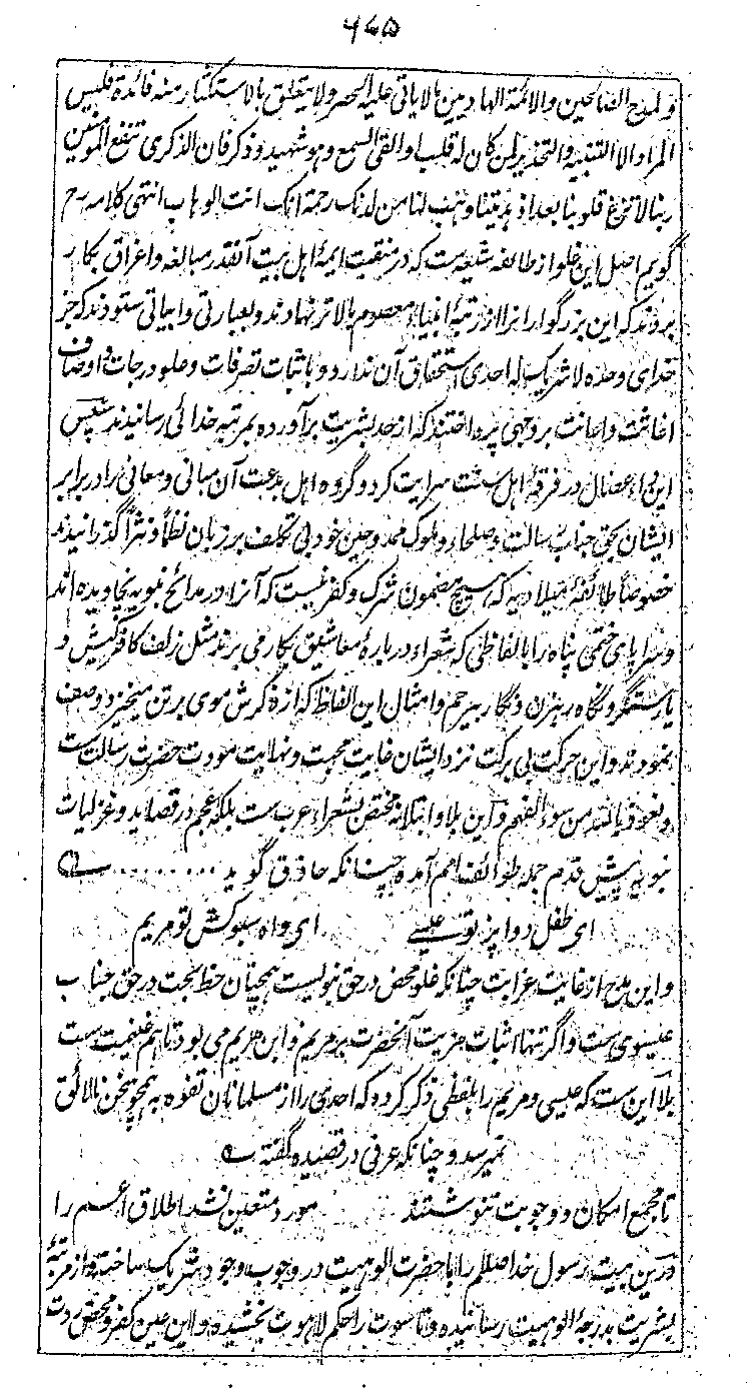 ۶۷۵
ولمدح الصالحين والائمة الهادين بالا ياتى عليه الحصر ولا يتعلق بالاستكثار منه فائدة فليس
المراد الا التنبيه والتحذير لمن كان له قلب او القى السمع وهو شهيد وذكر فان الذكرى تنفع المومنين
ربنا لا تزغ قلوبنا بعد اذ هديتنا وهب لنا من لدنك رحمة انك انت الوهاب انتهى كلامه رح
گويم اصل اين غلو از طائفه شيعه ست كه در منقبت ايمهٔ اهل بيت آنقدر مبالغه و اغراق بكار
بردند كه اين بزرگواران را از رتبهٔ انبياء معصوم بالاتر نهادند و بعبارتى و ابياتى ستودند كه جز
خداى وحده لا شريك له احدى استحقاق آن ندارد و باثبات تصرفات و علو درجات و اوصاف
اغاثت و اعانت بروجهى پرداختند كه از حد بشريت برآورده بمرتبهٔ خدائى رسانيدند سپس
اين داء عضال در فرقهٔ اهل سنت سرايت كرد و گروه اهل بدعت آن مبانى و معانى را در برابر
ايشان بحق جناب رسالت و صلحاء و ملوك ممدوحين خود بى تكلف بر زبان نظماً و نثراً گذرانيدند
خصوصاً طائفهٔ ميلاديه كه هيچ مضمون شرك و كفر نيست كه آنرا در مدائح نبويه نچاويده اند
و سراپاى ختمى پناه را بالفاظى كه شعراء دربارهٔ معاشيق بكار مى برند مثل زلف كافركيش و
يار ستمگر و نگاه رهزن و نگار بيرحم و امثال اين الفاظ كه از ذكرش موى بر تن ميخيزد وصف
نمودند و اين حركت بى بركت نزد ايشان غايت محبت و نهايت مودت حضرت رسالت ست
و نعوذ بالله من سوء الفهم و اين بلا و ابتلا نه مختص بشعراء عرب ست بلكه عجم در قصايد و غزليات
نبويه پيش قدم جمله طوائف هم آمده چنانكه حاذق گويد
اى طفل دواپز تو عيسے اى داه سبوكش تو مريم
و اين مدح از غايت غرابت چنانكه غلو محض در حق نبوليست همچنان حط بحت در حق جناب
عيسوى ست و اگر تنها اثبات مزيت آنحضرت بر مريم و ابن مريم مى بود تا هم غنيمت ست
بلا اين ست كه عيسى و مريم را بلفظى ذكر كرده كه احدى را از مسلمانان تفوه به همچو سخن نالائق
نميرسد و چنانكه عرفى در قصيده گفته
تا مجمع امكان و وجوبت ننوشتند مورد متعين نشد اطلاق اعم را
درين بيت رسول خدا صللم را با حضرت الوهيت در وجوب وجود شريك ساخته و از مرتبهٔ
بشريت بدرجهٔ الوهيت رسانيده و ناسوت را حكم لاهوت بخشيده و اين عين كفر و محض ردت